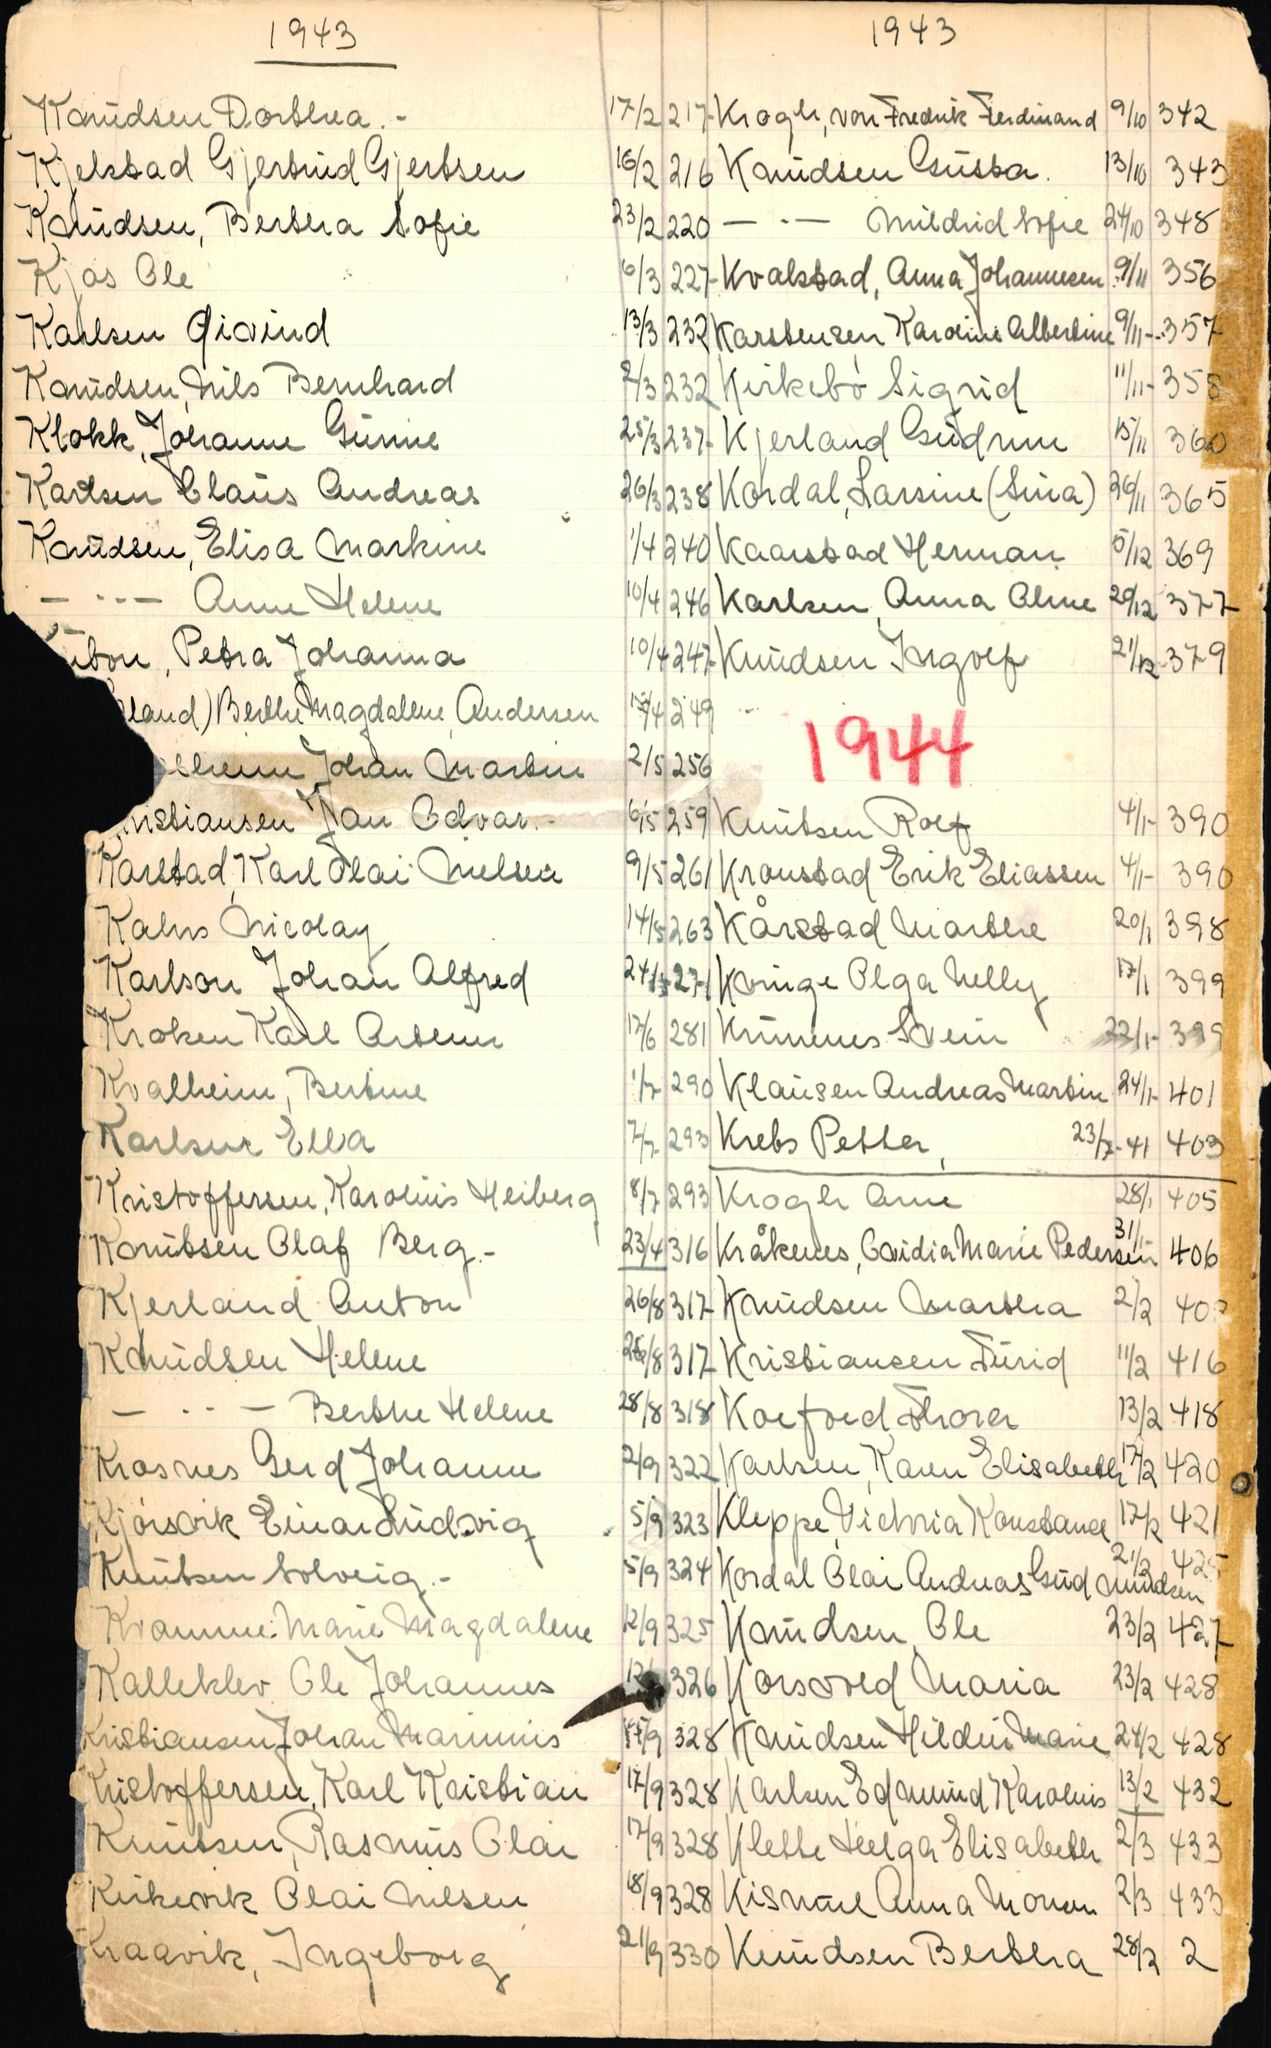 1943
Knudsen Dorthea.- 17/2 217
Kjelstad Gjertrud Gjertsen 16/2 216
Knudsen, Berthea Sofie 23/2 220
Kjos Ole 6/3 227
Karlsen Øivind 13/3 232
Knudsen, Nils Bernhard 2/3 232
Klokk, Johanne Gurine 25/3 237
Karlsen Claus Andreas 26/3 238
Knudsen, Elisa Markine 1/4 240
— " — Anne Helene 10/4 246
Petra Johanna 10/4 247
land) Berthe Magdalene Andersen 15/4 249
Johan Martin 2/5 256
ristiansen Jan Edvar.- 6/5 259
Karstad, Karl Olai Nielsen 9/5 261
Kahrs Nicolay 14/5 263
Karlson Johan Alfred 24/5 271
Kroken Karl Artemr 12/6 281
Kvalheim, Bertine 1/7 290
Karlsen Ella 7/7 293
Kristoffersen, Karolius Heiberg 8/7 293
Knutsen Olaf Berg.- 23/4 316
Kjerland Anton 26/8 317
Knudsen Helene 28/8 317
— " — Berthe Helene 28/8 318
Krosnes Gerd Johanne 2/9 322
Kjørsvik Einar Ludvig 5/9 323
Knutsen Solveig.- 5/9 324
Kramme Marie Magdalene 12/9 325
Kalleklev Ole Johannes 326
Kristiansen Johan Marinius 15/9 328
Kristoffersen, Karl Kristian 17/9 328
Knutsen, Rasmus Olai 17/9 328
Kirkevik Olai Nilsen 18/9 328
Kraavik, Ingeborg 21/9 330
1943
Krogh, von Fredrik Ferdinand 9/10 342
Knudsen Gusta. 13/10 343
— " — Mildrid Sofie 24/10 348
Kvalstad, Anna Johannesen 9/11 356
Karstensen Karoline Albertine 9/11 357
Kirkebø Sigrid 11/11 358
Kjerland Gudrun 15/11 360
Kordal, Larsine (Sina) 26/11 365
Kaarstad Herman 5/12 369
Karlsen, Anna Oline 20/12 377
Knudsen Ingolf 21/12 379
1944
Knutsen Rolf 4/1 390
Kronstad Erik Eliassen 4/1 390
Kårstad Marthe 20/1 398
Kvinge Olga Nelly 17/1 399
Krumnes Svein 22/1 399
Klausen Andreas Martin 24/1 401
Krebs Petter, 23/7-41 403
Krogh Arne 28/1 405
Kråkenes, Ovidia Marie Pedersen 31/1 406
Knudsen Martha 2/2
Kristiansen Turid 11/2 416
Koefoed Thora 13/2 418
Karlsen, Karen Elisabeth 17/2 420
Kleppe, Victoria Konstance 17/2 421
Kordal Olai Andreas Gudmundsen 21/2 425
Knudsen, Ole 23/2 427
Korsvold Maria 23/2 428
Knudsen Hildur Marie 24/2 428
Karlsen Edmund Karolius 13/2 432
Klette Helga Elisabeth 2/3 433
Kismul Anna Monsen 2/3 433
Knudsen Berthea 28/2 2